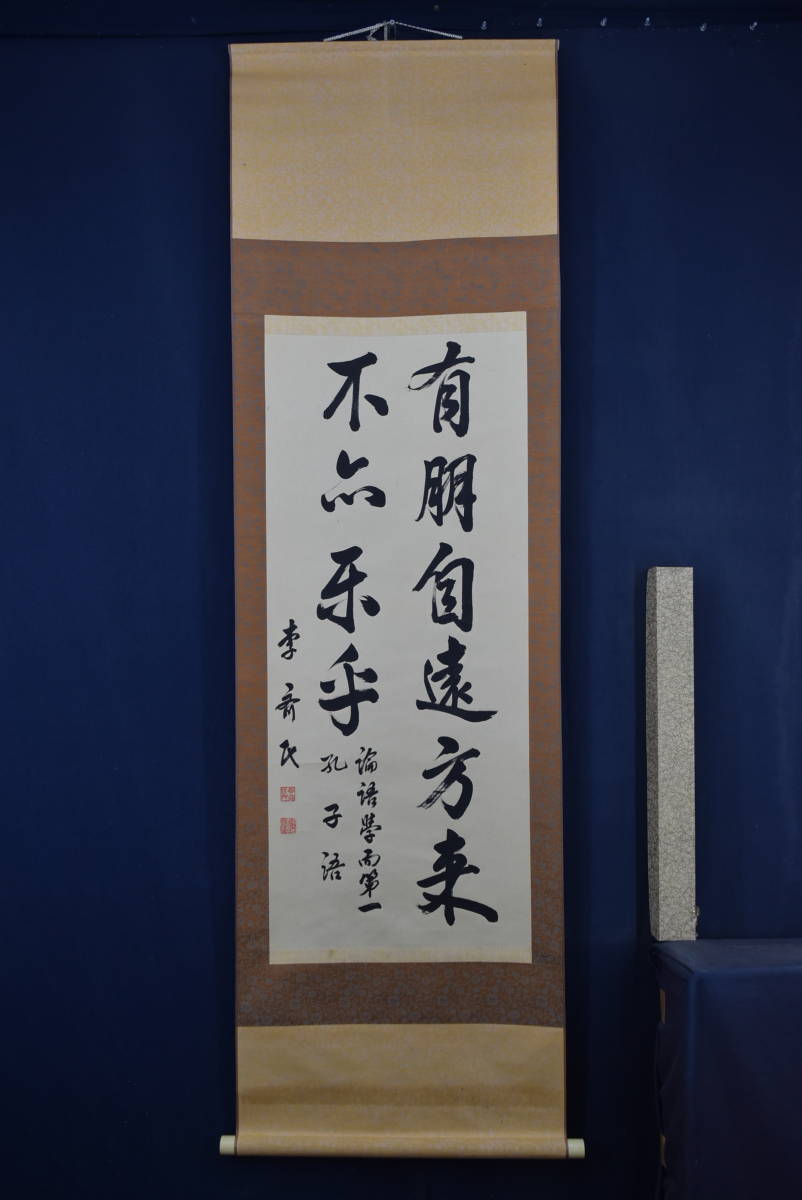 有朋自遠方来
不亦乐乎
論語學而第一
孔子語
李